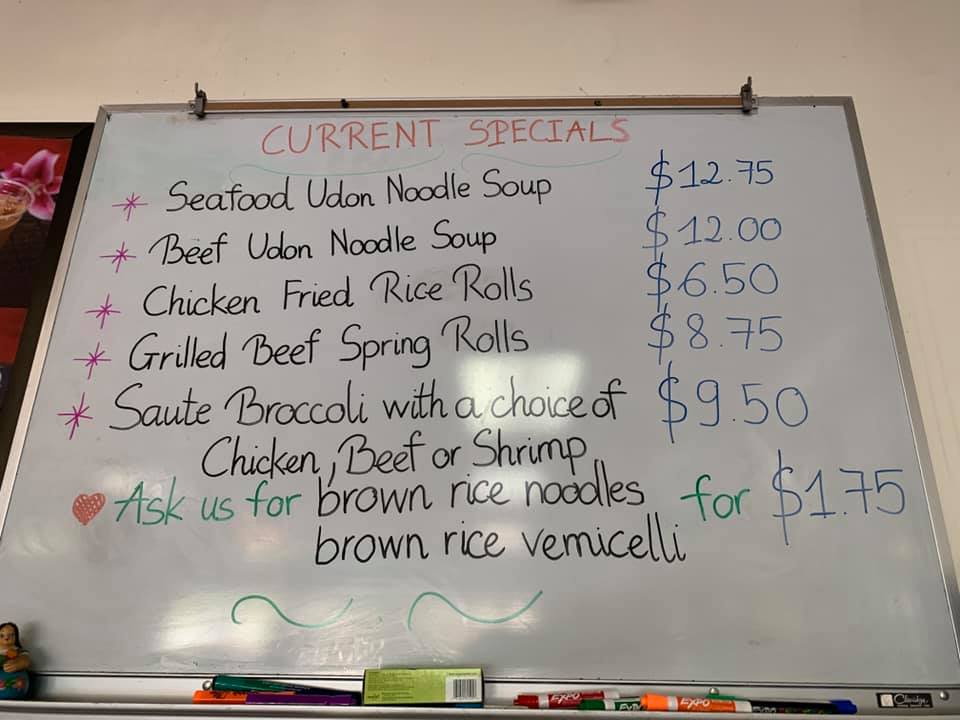 CURRENT SPECIALS
Seafood Udon Noodle Soup $12.75
Beef Udon Noodle Soup $12.00
Chicken Fried Rice Rolls $6.50
Grilled Beef Spring Rolls $8.75
Saute Broccoli with a choice of $9.50
Chicken, Beef or Shrimp
Ask us for brown rice noodles for $1.75
brown rice vemicelli
EXPO EXPO EXPO